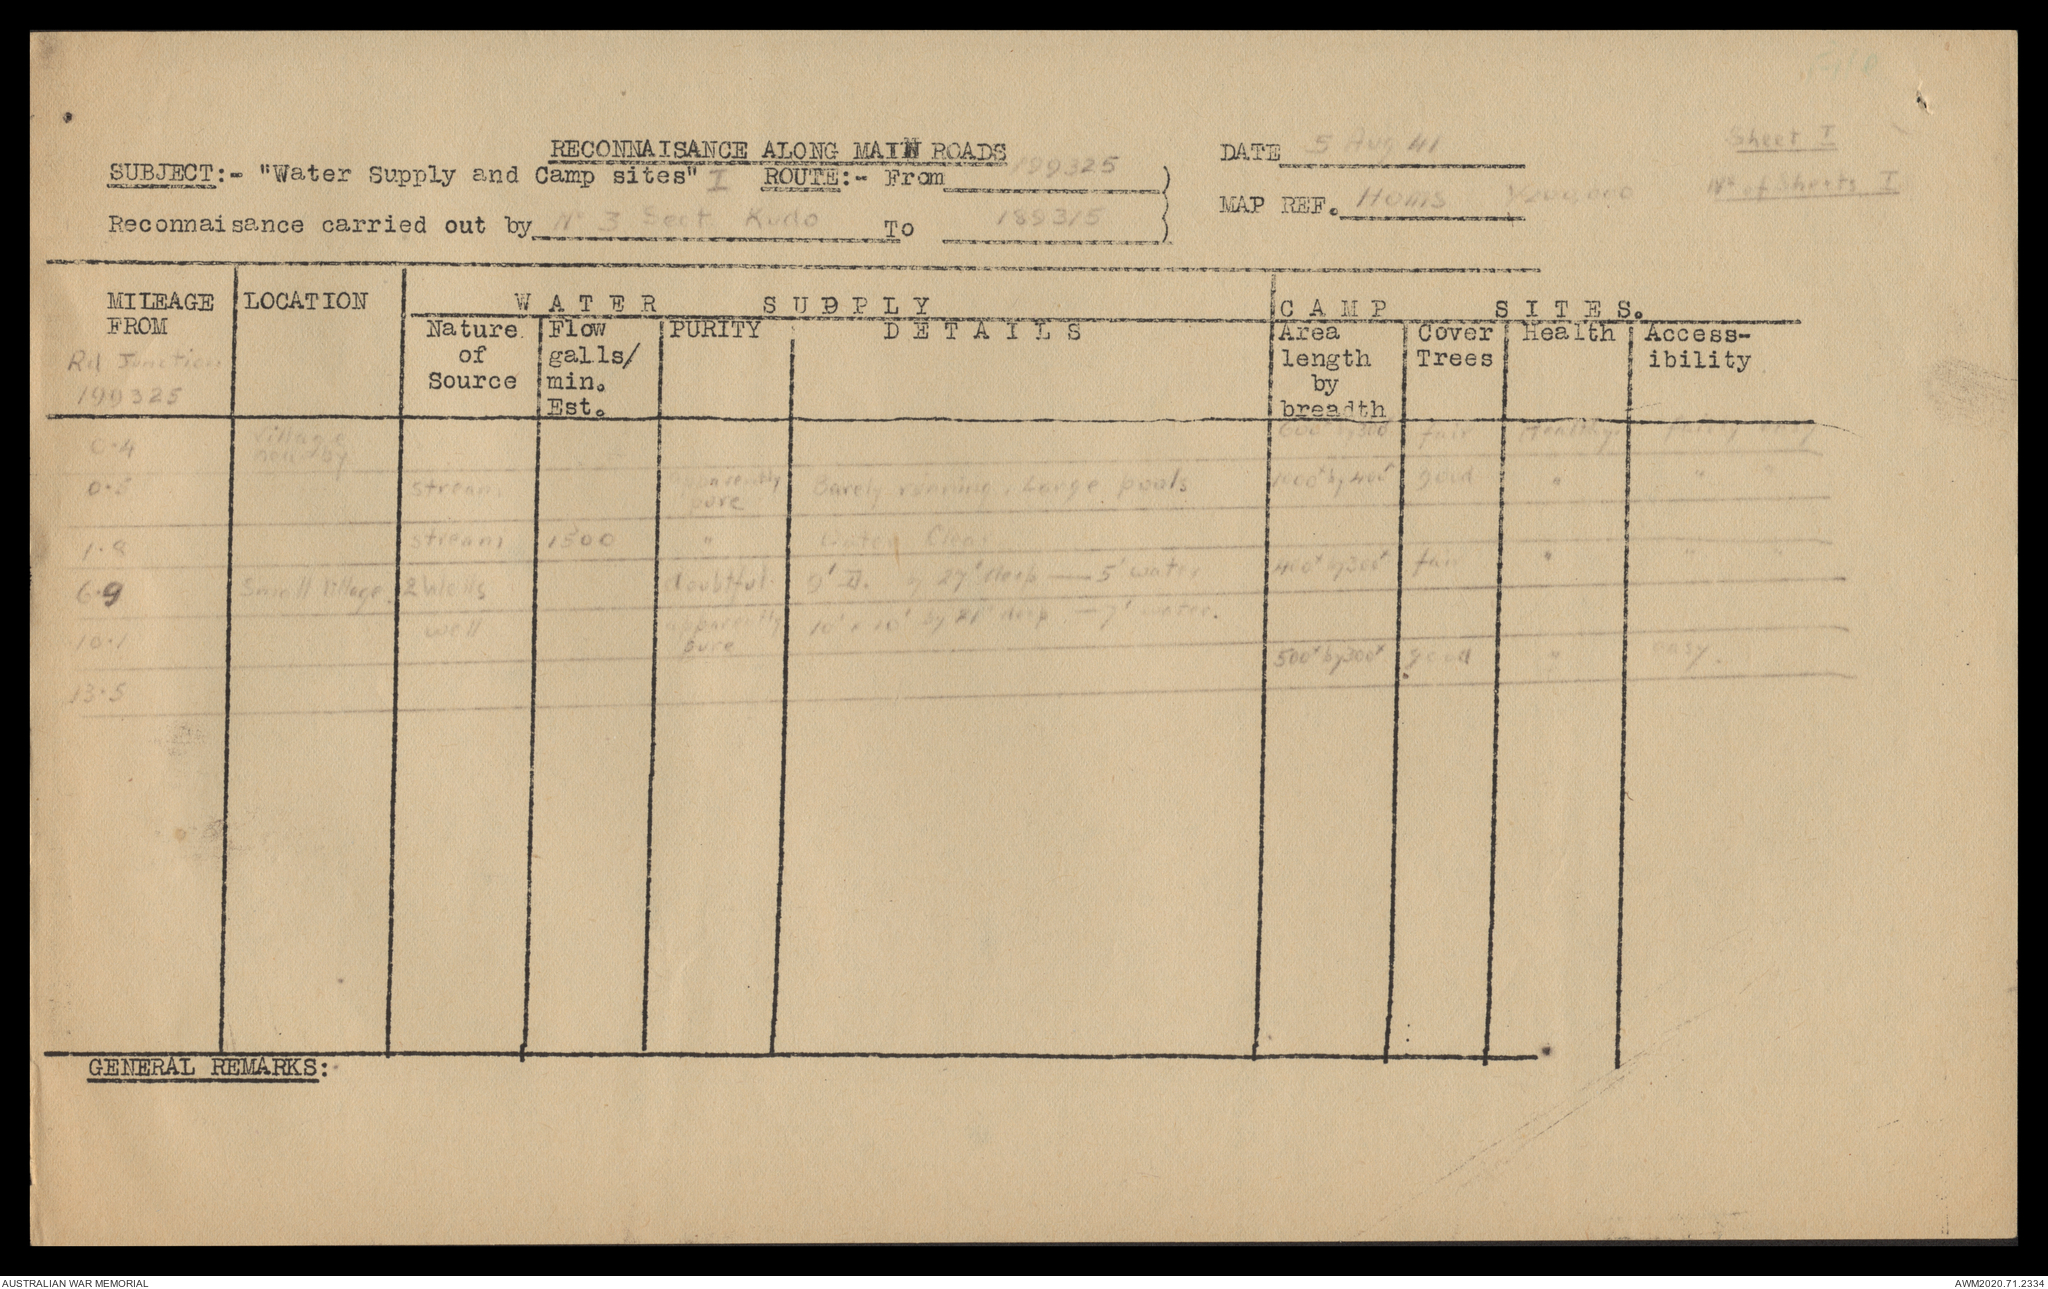 Sheet I
RECONNAISANCE ALONG MAIN ROADS
DATE 5 Aug 41
SUBJECT:- "Water Supply and Camp sites" I ROUTE:- From 199325 )
Nº of Sheets I
MAP REF. Homs 1/200,000
Reconnaisance carried out by Nº 3 Sect. Kudo To 189315 )
MILEAGE FROM
Rd Junction
199325
LOCATION
WATER SUPPLY
CAMP SITES.
Nature of Source
Flow galls/ min. Est.
PURITY
DETAILS
Area length by breadth
Cover Trees
Health
Access-ibility
0.4 village nearby 600x by 300x fair Healthy fairly easy
0.8 stream apparently pure Barely running. Large pools 1000x by 400x good " " "
1.8 stream 1500 " Water Clear
6.9 Small Village 2 Wells doubtful 9' by 27' deep — 5' water 400x by 300x fair " " "
10.1 well apparently pure 10' x 10' by 21' deep — 7' water.
13.5 500x by 300x good " easy.
GENERAL REMARKS:
AUSTRALIAN WAR MEMORIAL
AWM2020.71.2334